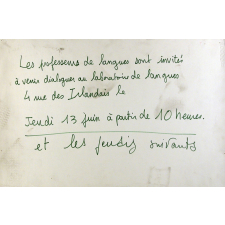 Les professeurs de langues sont invités
à venir dialoguer au laboratoire de langues
4 rue des Irlandais le
Jeudi 13 juin à partir de 10 heures.
et les jeudis suivants